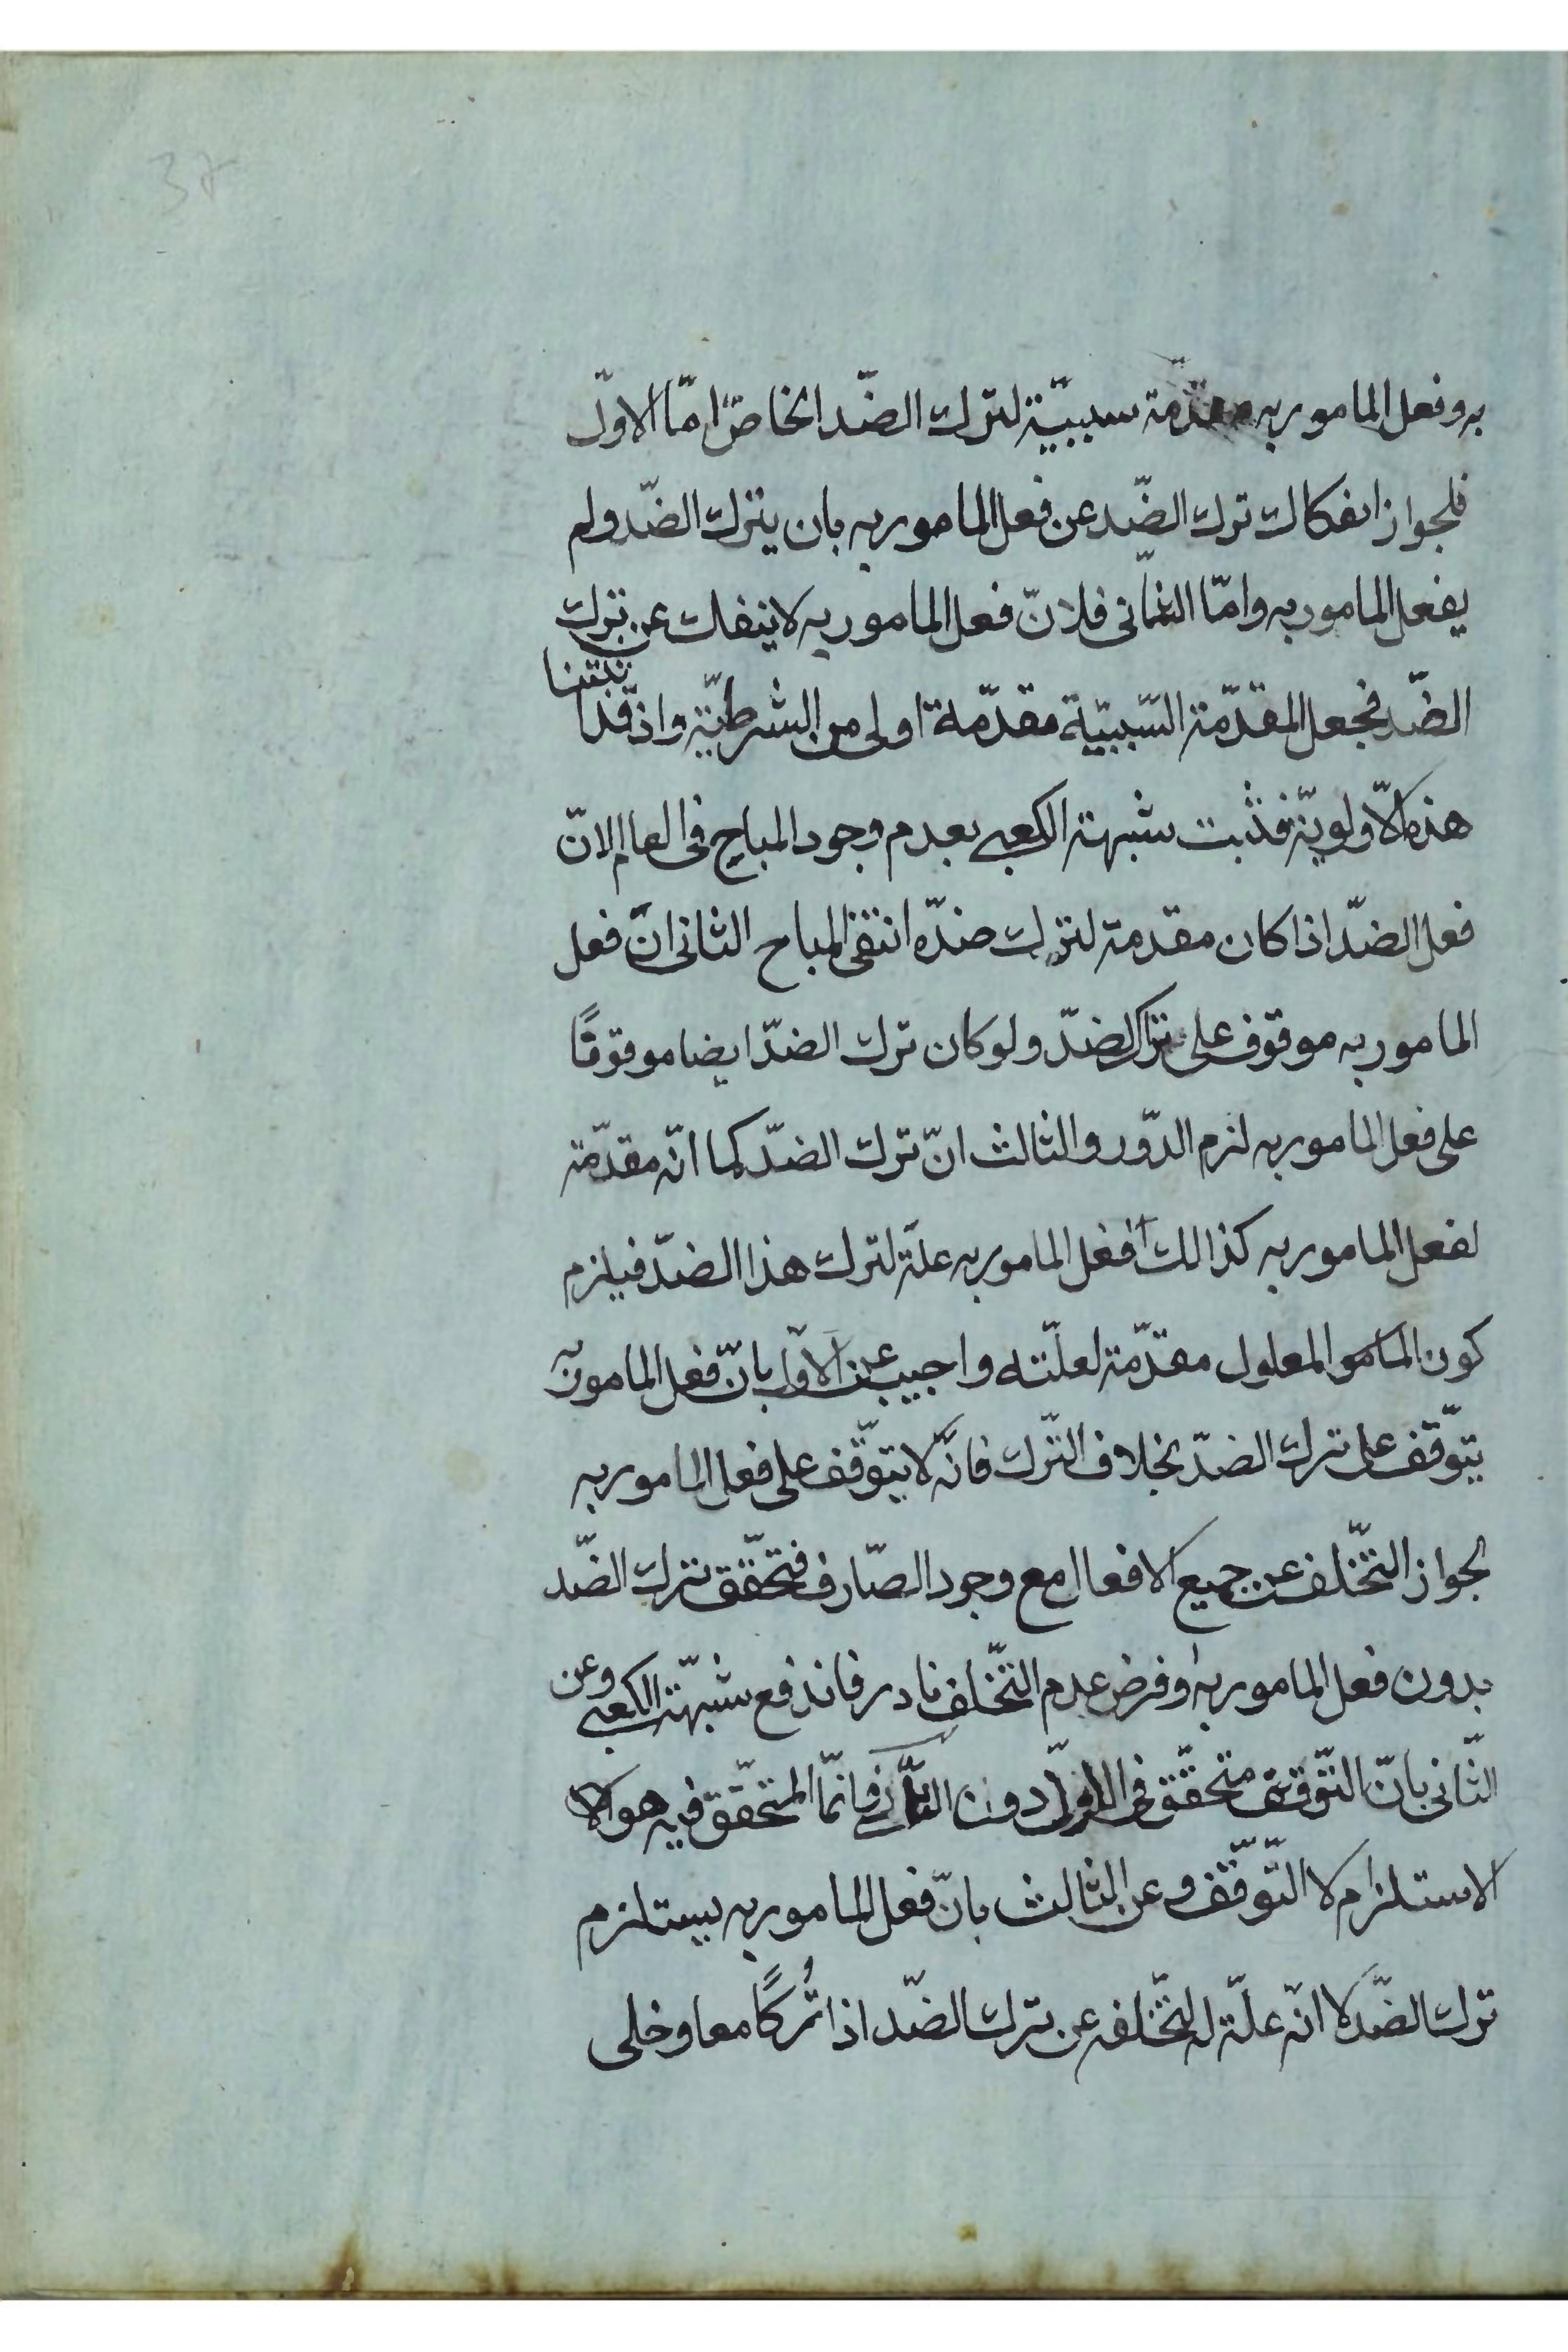 به وفعل المامور به مقدّمة سببيّة لترك الضّد الخاصّ امّا الاوّل
فلجواز انفكاك ترك الضّد عن فعل المامور به بان يترك الضّد ولم
يفعل المامور به وامّا الثّانى فلانّ فعل المامور به لا ينفك عن ترك
الضّد فجعل المقدّمة السّببيّة مقدّمة اولى من الشرطيّة واذ قد اثبتنا
هذه الاولويّة فثبت شبهة الكعبى بعدم وجود المباح فى العالم لانّ
فعل الضدّ اذا كان مقدمة لترك ضدّه انتفى المباح الثانى انّ فعل
المامور به موقوف على ترك الضدّ ولو كان ترك الضدّ ايضا موقوفًا
على فعل المامور به لزم الدّور والثالث انّ ترك الضدّ كما انّه مقدّمة
لفعل المامور به كذالك ففعل المامور به علّة لترك هذا الضدّ فيلزم
كون المعلول مقدّمة لعلّته واجيب عن الاوّل بانّ فعل المامور به
يتوقّف على ترك الضدّ بخلاف التّرك فانّه لا يتوقّف على فعل المامور به
لجواز التّخلف عن جميع الافعال مع وجود الصّارف فتحقّق ترك الضّد
بدون فعل المامور به وفرض عدم التّخلف نادر فاندفع شبهة الكعبى وعن
الثّانى بانّ التّوقف متحقّق فى الاوّل دون الثّانى فانّما المتحقّق فيه هو الا
الاستلزام لا التّوقّف وعن الثالث بانّ فعل المامور به يستلزم
ترك الضّد لا انّه علّة له لتخّلفه عن ترك الضّد اذا تُركًا معا وخلى